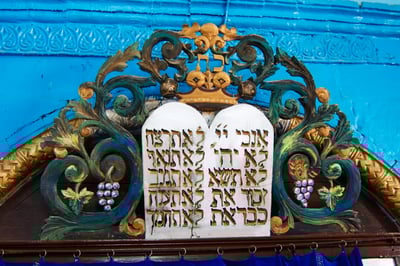 כת
אנכי יי
לא יה'
לא תשא
זכור את
כבד את
לא תרצח
לא תנאף
לא תגנב
לא תענה
לא תחמד